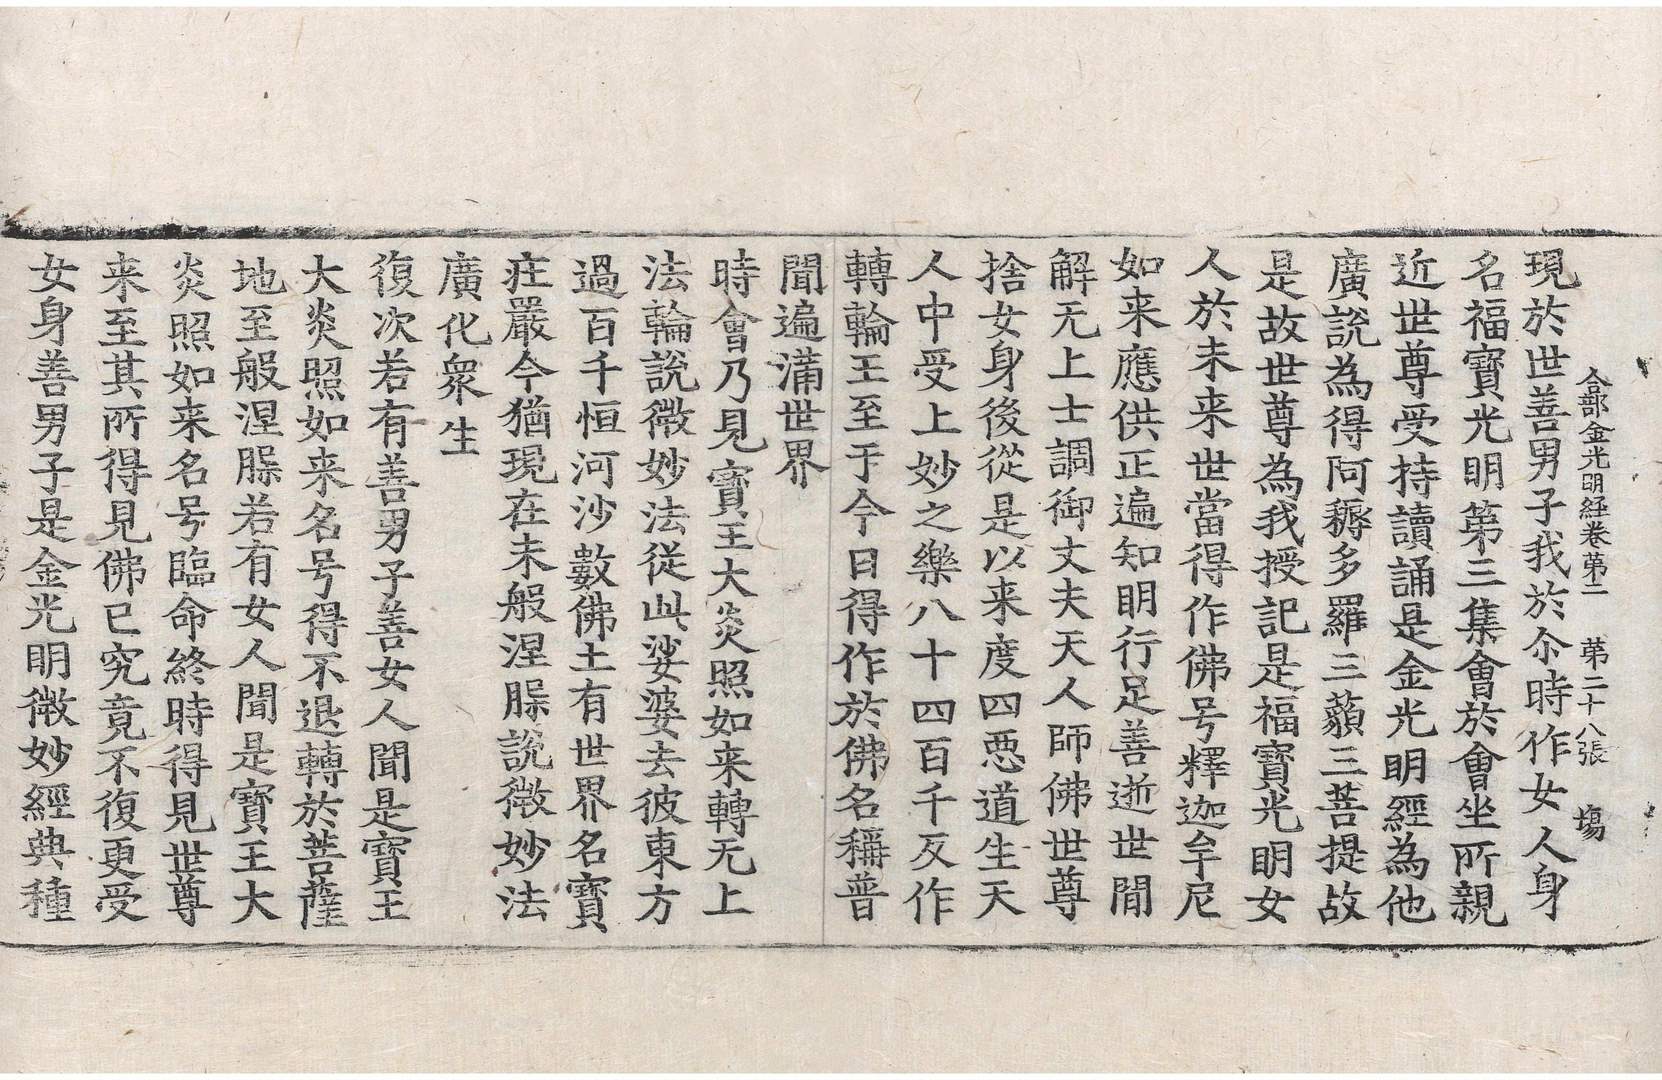 合部金光明經卷第二 第二十八張 塲
現於世善男子我於尒時作女人身
名福寶光明第三集會於會坐所親
近世尊受持讀誦是金光明經為他
廣說為得阿耨多羅三藐三菩提故
是故世尊為我授記是福寶光明女
人於未来世當得作佛号釋迦牟尼
如来應供正遍知明行足善逝世間
解无上士調御丈夫天人師佛世尊
捨女身後從是以来度四惡道生天
人中受上妙之樂八十四百千反作
轉輪王至于今日得作於佛名稱普
聞遍滿世界
時會乃見寶王大炎照如来轉无上
法輪說微妙法從此娑婆去彼東方
過百千恒河沙數佛土有世界名寶
莊嚴今猶現在未般涅槃說微妙法
廣化衆生
復次若有善男子善女人聞是寶王
大炎照如来名号得不退轉於菩薩
地至般涅槃若有女人聞是寶王大
炎照如来名号臨命終時得見世尊
来至其所得見佛已究竟不復更受
女身善男子是金光明微妙經典種